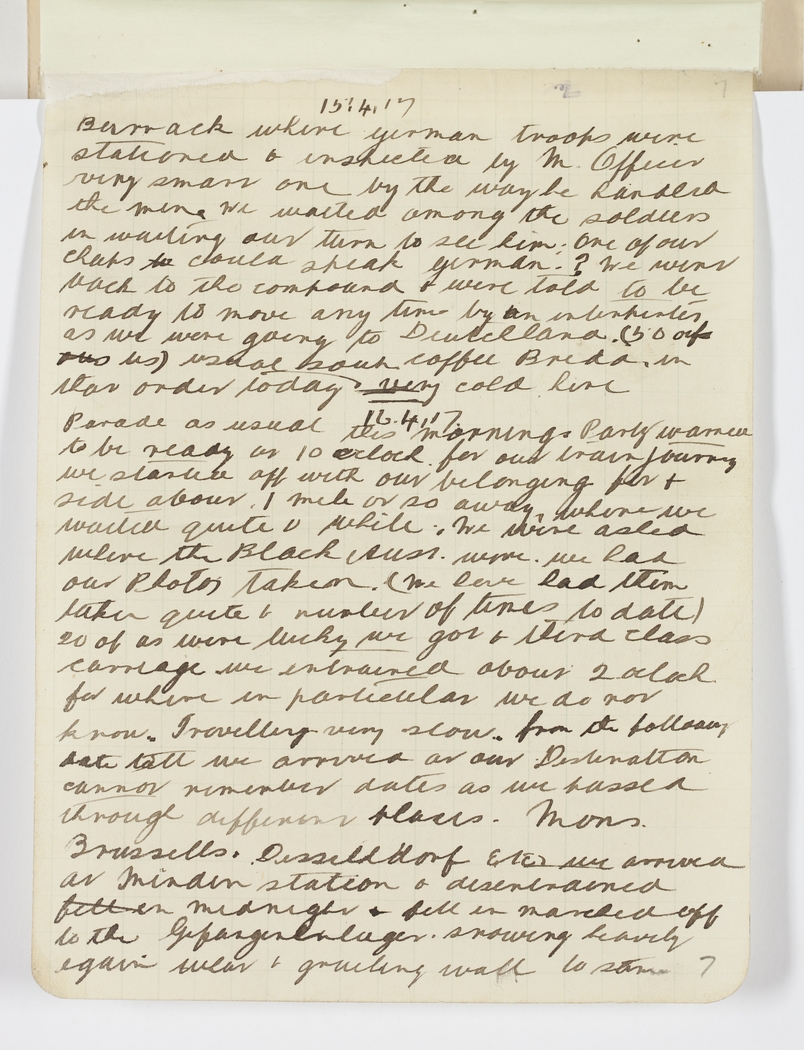 7
15.4.17
Barrack where german troops were
stationed & inspected by M. Officer
very smart one by the way he handled
the men. We waited among the soldiers
in waiting our turn to see him. one of our
chaps could speak german. ? We went
back to the compound & were told to be
ready to move any time by an interpreter
as we were going to Deutclland. (50 of
us) usual soup coffee Bread. in
that order today. very cold here
16.4.17
Parade as usual this morning. Party warned
to be ready at 10 oclock for our train journey
we started off with our belonging for
side about 1 mile or so away, where we
waited quite a while. We were asked
where the Black Aust. were. we had
our Photos taken. (We have had them
taken quite a number of times to date)
20 of us were lucky we got a third class
carriage we entrained about 2 oclock
for where in particular we do not
know. Travelling very slow. from the following
date till we arrived at our Destination
cannot remember dates as we passed
through different places. Mons.
Brussells. Dusselddorf Etc we arrived
at Minden station & disentrained
fell in midnight & fell in marched off
to the Gefangenenlager. snowing heavily
again what a gruelling walk to some 7